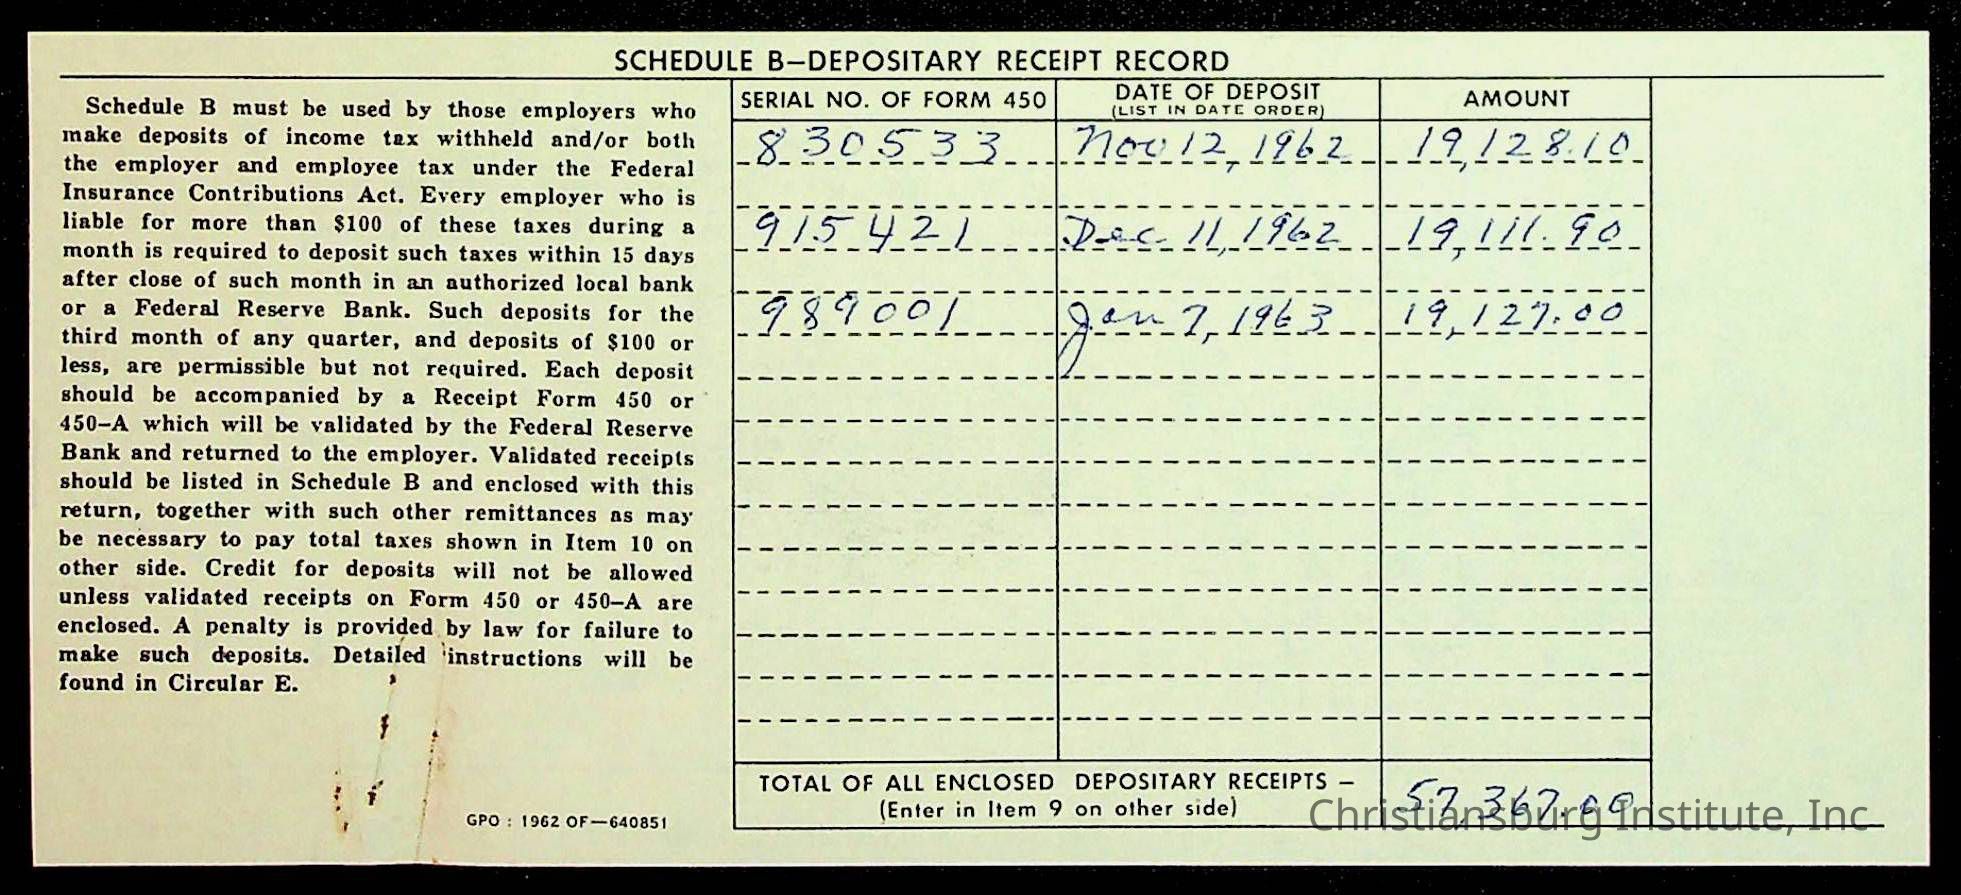 SCHEDULE B—DEPOSITARY RECEIPT RECORD
Schedule B must be used by those employers who
make deposits of income tax withheld and/or both
the employer and employee tax under the Federal
Insurance Contributions Act. Every employer who is
liable for more than $100 of these taxes during a
month is required to deposit such taxes within 15 days
after close of such month in an authorized local bank
or a Federal Reserve Bank. Such deposits for the
third month of any quarter, and deposits of $100 or
less, are permissible but not required. Each deposit
should be accompanied by a Receipt Form 450 or
450–A which will be validated by the Federal Reserve
Bank and returned to the employer. Validated receipts
should be listed in Schedule B and enclosed with this
return, together with such other remittances as may
be necessary to pay total taxes shown in Item 10 on
other side. Credit for deposits will not be allowed
unless validated receipts on Form 450 or 450–A are
enclosed. A penalty is provided by law for failure to
make such deposits. Detailed instructions will be
found in Circular E.
GPO : 1962 OF—640851
SERIAL NO. OF FORM 450 DATE OF DEPOSIT (LIST IN DATE ORDER) AMOUNT
830533 Nov 12, 1962 19,128.10
915421 Dec. 11, 1962 19,111.90
989001 Jan 7, 1963 19,127.00
TOTAL OF ALL ENCLOSED DEPOSITARY RECEIPTS — 57,367.00
(Enter in Item 9 on other side)
Christiansburg Institute, Inc